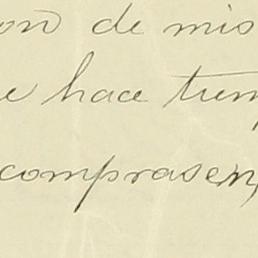 on de mis
e hace tiem
comprasen,